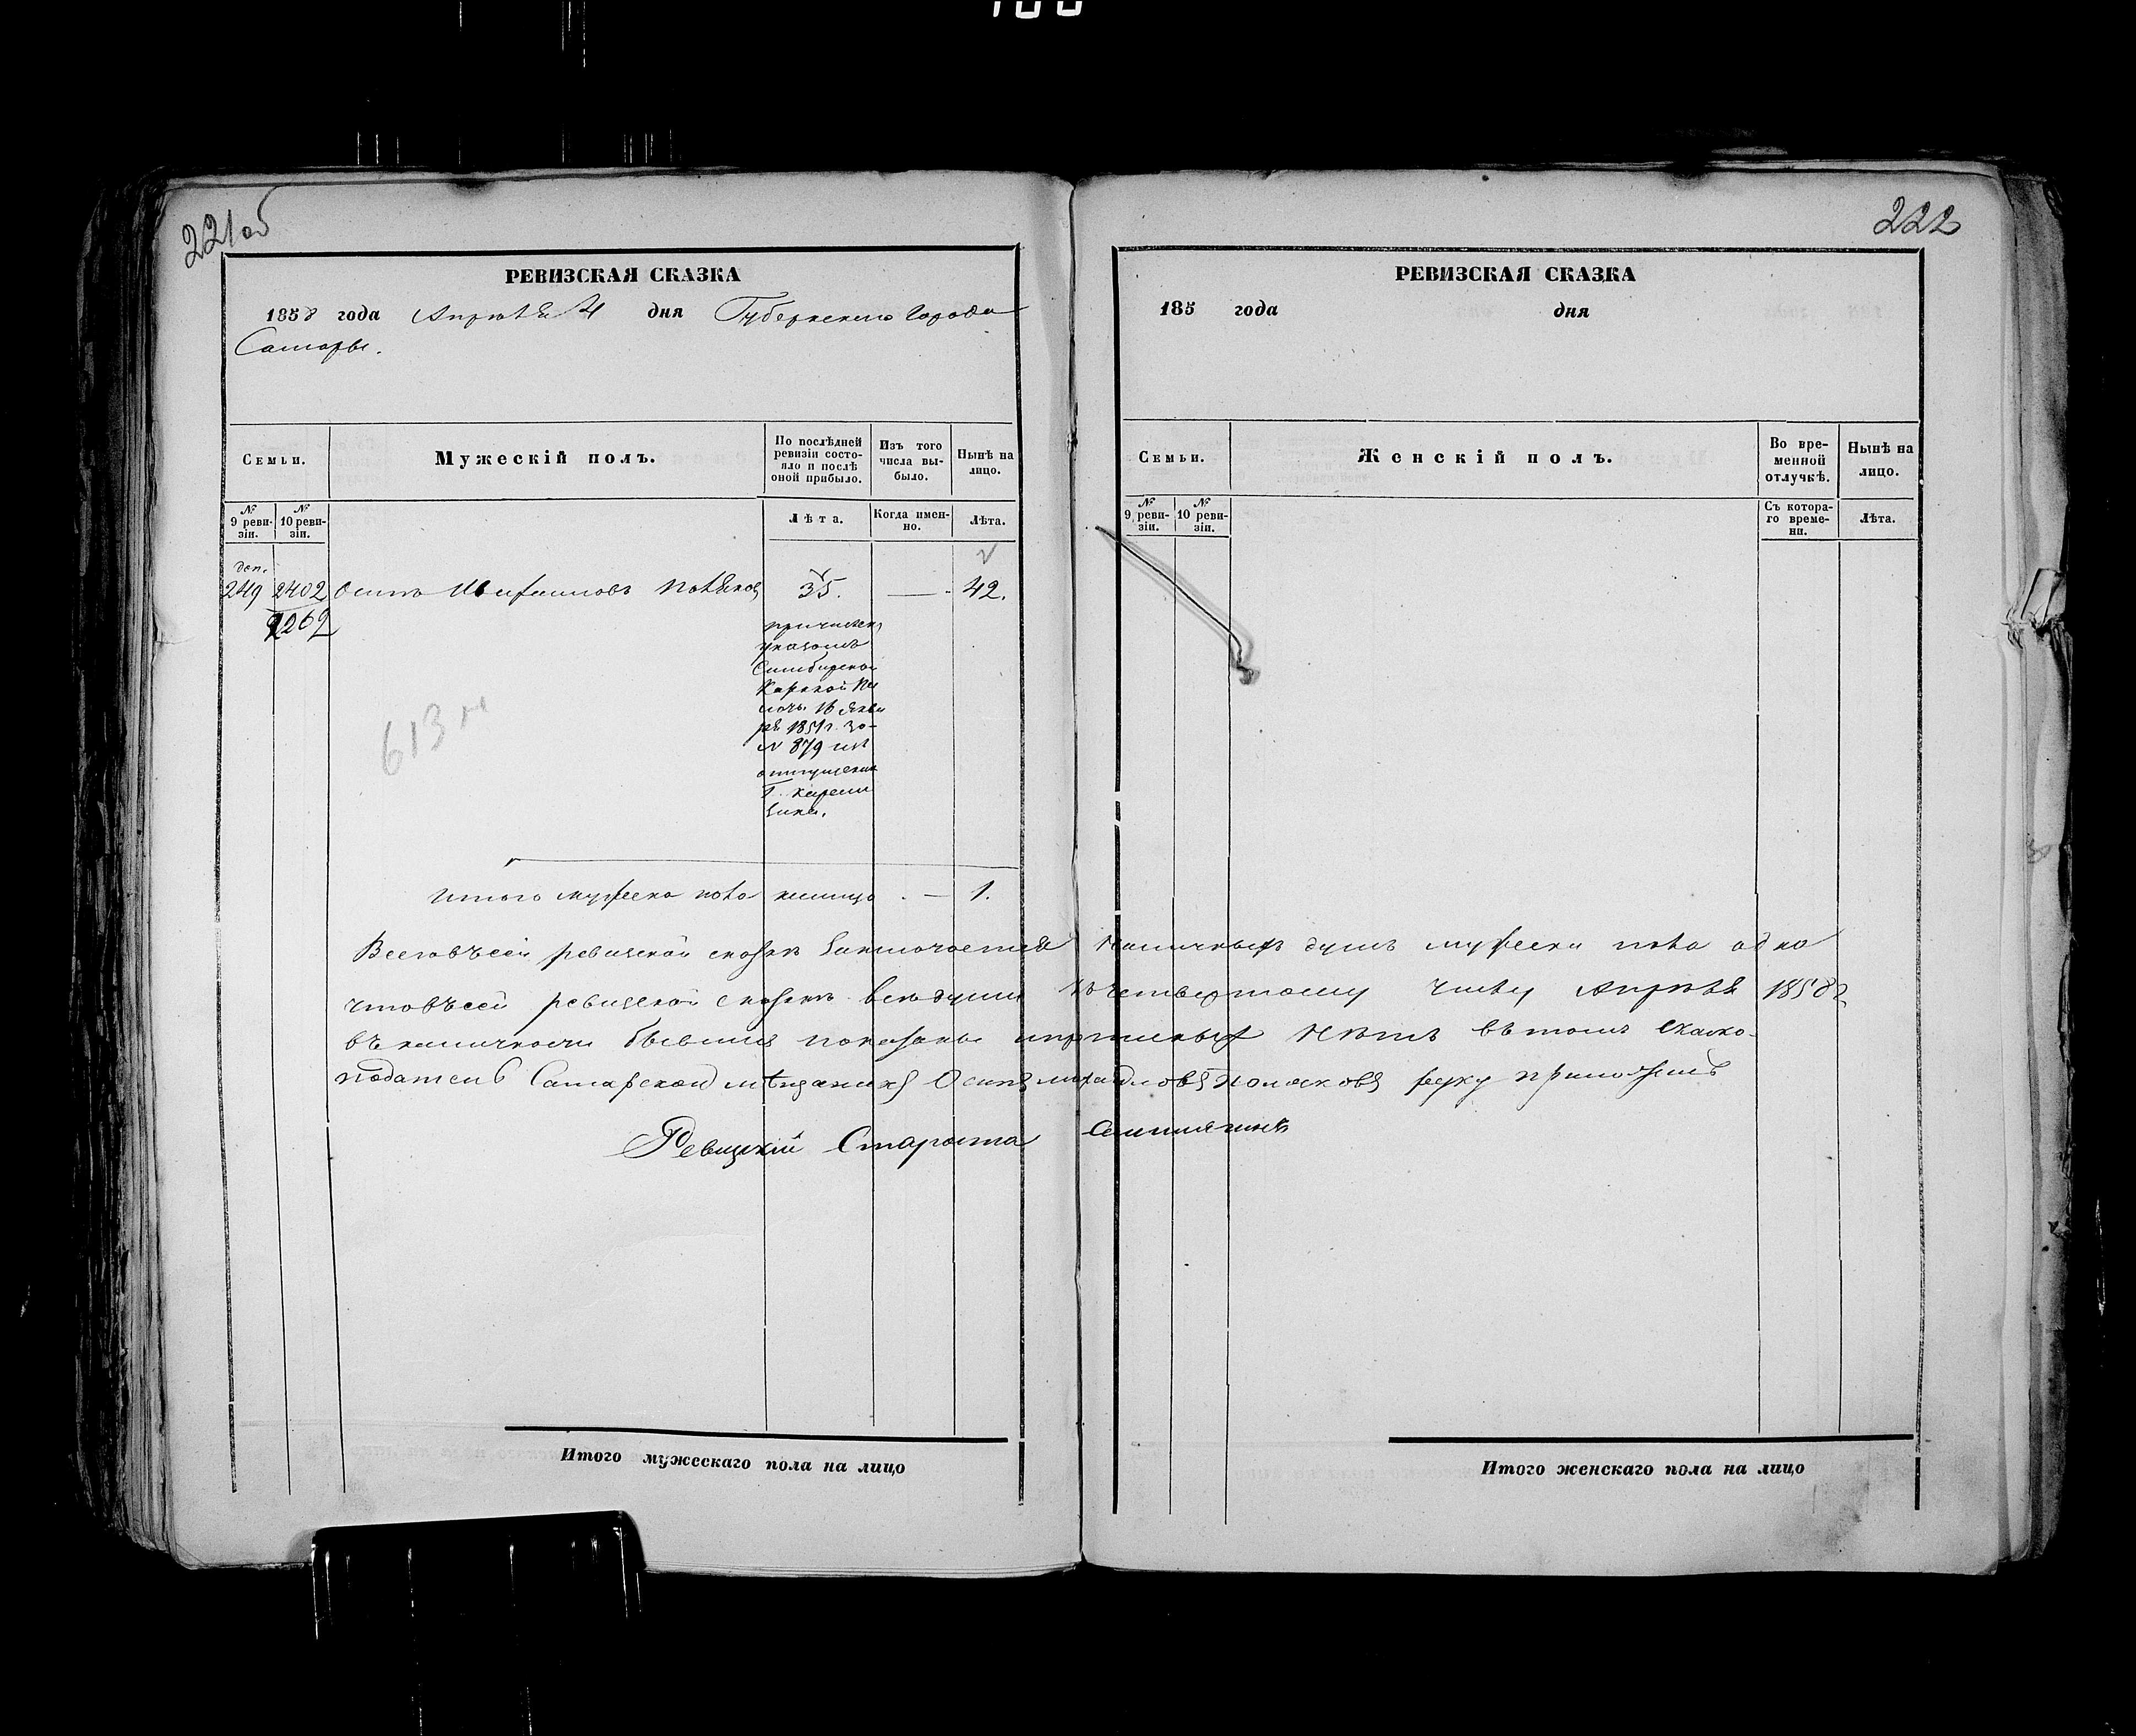 221об
РЕВИЗСКАЯ СКАЗКА
1858 года Апрѣля 4 дня Губернскаго города
Самары.
Семьи.
Мужескій полъ.
По послѣдней
ревизіи состо-
яло и послѣ
оной прибыло.
Изъ того
числа вы-
было.
Нынѣ на
лицо.
№
9 реви-
зіи.
№
10 реви-
зіи.
Лѣта.
Когда имен-
но.
Лѣта.
доп.
249 2402 Осипъ Михаиловъ Поляковъ 35. — 42.
1262
причислен
указомъ
Симбирской
Казеной Па
латы 16 Янва
ря 1851 г. за
№ 879 изъ
отпущеных
Г.
613 м
Итого мужеска пола налицо — 1.
Всего въ сей ревизской сказкѣ заключается наличныхъ душъ мужеска пола одна
что въ сей ревизской сказкѣ всѣ души къ четвертому числу Апрѣля 1858 г
въ наличности бывшия показаны и прописныхъ нѣтъ въ томъ сказко-
податель Самарской мѣщанинъ Осипъ Михайловъ Поляковъ руку приложилъ
Ревизскій Староста
Итого мужескаго пола на лицо
222
РЕВИЗСКАЯ СКАЗКА
185 года дня
Семьи.
Женскій полъ.
Во вре-
менной
отлучкѣ.
Нынѣ на
лицо.
№
9 реви-
зіи.
№
10 реви-
зіи.
Съ котора-
го време-
ни.
Лѣта.
Итого женскаго пола на лицо